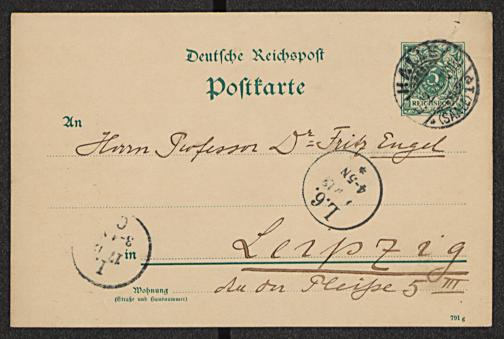 Deutsche Reichspost
Postkarte
HALLE
(SAALE)
REICHSPOST
An
Herrn Professor Dr Fritz Engel
L.6.
4-5N
*
in Leipzig
Wohnung
(Straße und Hausnummer)
an der Pleiße 5 III
791 g